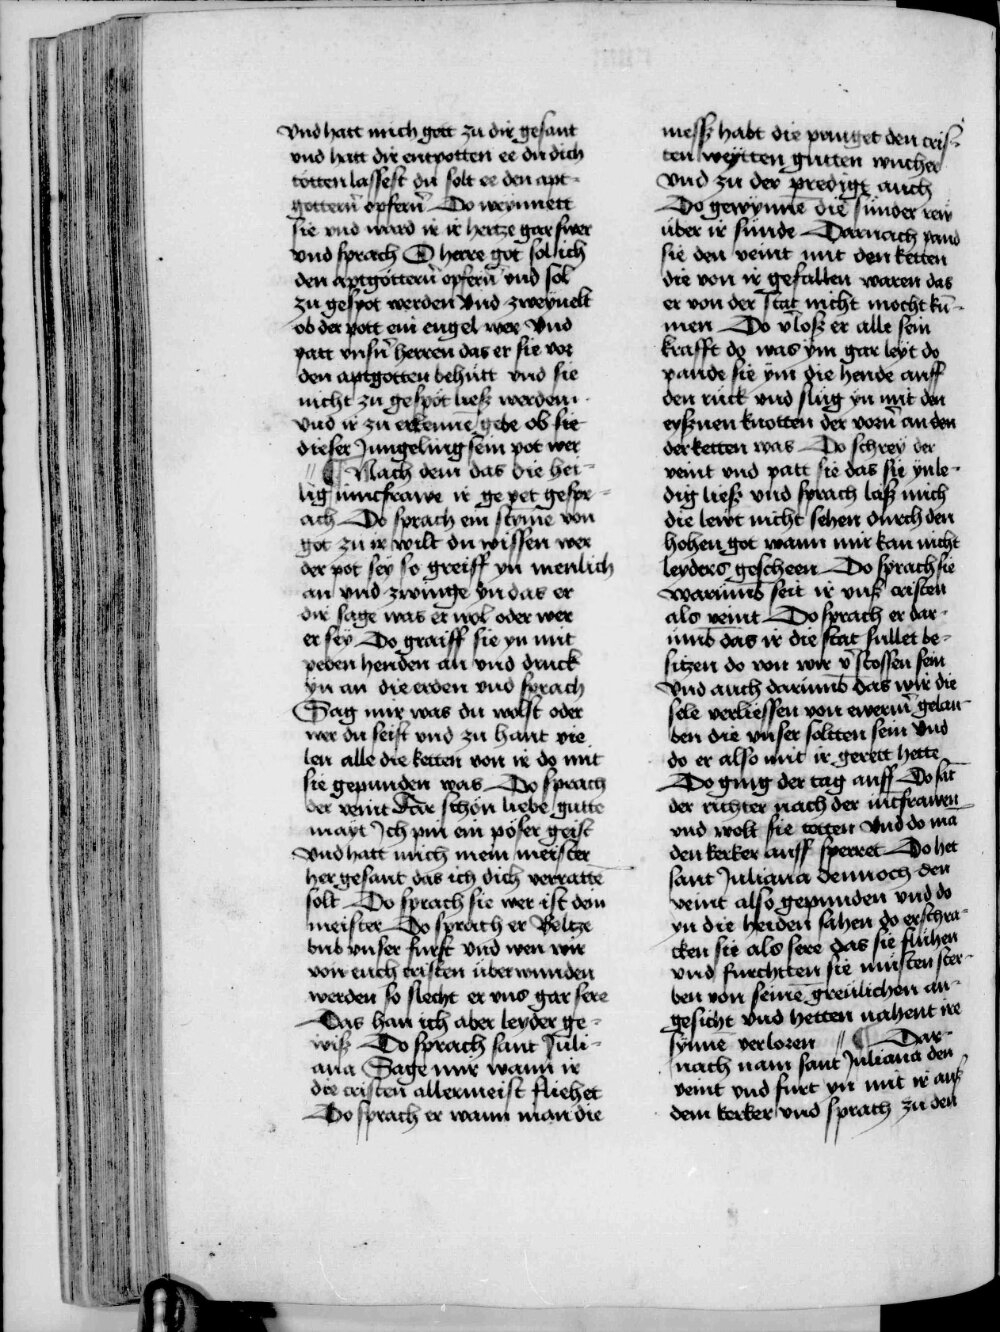 vnd hatt mich gott zu dir gesant
vnd hatt dir enpotten ee du dich
totten lassest du solt ee den apt-
gottern̄ opfern̄ Do weynnett
sie vnd ward ir ir hertze gar swer
vnd sprach O herre got sol ich
den aptgöttern̄ opfern̄ vnd sol
zu gespot werden vnd zweyuelt
ob der pott ein engel wer Vnd
patt vnsn̄ herren das er sie vor
den aptgotten behütt vnd sie
nicht zu gespöt ließ werden
vnd ir zu erkenne gebe ob sie
dieser Jungeling sein pot wer
// ¶ Nach dem das die hei-
lig iuncfrawe ir ge pet gespr-
ach Do sprach ein stȳme von
got zu ir wilt du wissen wer
der pot sey so greiff yn menlich
an vnd zwinge yn das er
dir sage was er wol oder wer
er sey Do graiff sie yn mit
peden henden an vnd druck
yn an die erden vnd sprach
Sag mir was du wolst oder
wer du seist vnd zu hant vie
len alle die ketten von ir do mit
sie gepunden was Do sprach
der veint Gar schön liebe gutte
mayt Ich pin ein pöser geist
vnd hatt mich mein meister
her gesant das ich dich verratte
solt Do sprach sie wer ist dein
meister Do sprach er Beltze
bub vnser furst vnd wen wir
von euch cristen überwunden
werden so slecht er vns gar sere
Das han ich aber leyder ge-
wiß Do sprach sant Juli-
ana Sage mir wann ir
die cristen allermeist fliehet
Do sprach er wann man die
messz habt die pringet den cris-
ten weytten gutten wucher
vnd zu der predigt auch
Do gewynne die sünder rew
über ir sünde Darnach pand
sie den veint mit den ketten
die von ir gefallen waren das
er von der stat nicht mocht kū-
men Do v̄loß er alle sein
krafft do was ym gar leyt do
pande sie ym die hende auff
den rück vnd slug yn mit den
eyßnen knotten der vorn̄ an den
der ketten was Do schrey der
veint vnd patt sie das sie yn le-
dig ließ vnd sprach laß mich
die lewt nicht sehen durch den
hohen got wann mir kan nicht
leyders gescheen Do sprach sie
warumb seit ir vnß cristen
als veint Do sprach er dar-
umb das ir die stat sullet be-
sitzen do von wir v̄stossen sein
vnd auch darumb das wir die
sele verliessen von ewerm̄ gelau-
ben die vnser soltten sein Vnd
do er also mit ir gerett hette
Do ging der tag auff Do sāt
der richter nach der iūcfrawen
vnd wolt sie totten Vnd do mā
den kerker auff sperret Do het
sant Juliana dennoch den
veint also gepunden vnd do
yn die heiden sahen do erschra-
cken sie als sere das sie fluhen
vnd furchtten sie müsten ster-
ben von seinē greulichen an-
gesicht vnd hetten nahent ire
synne verloren // ¶ Dar-
nach nam sant Juliana den
veint vnd furt yn mit ir auß
dem kerker vnd sprach zu den